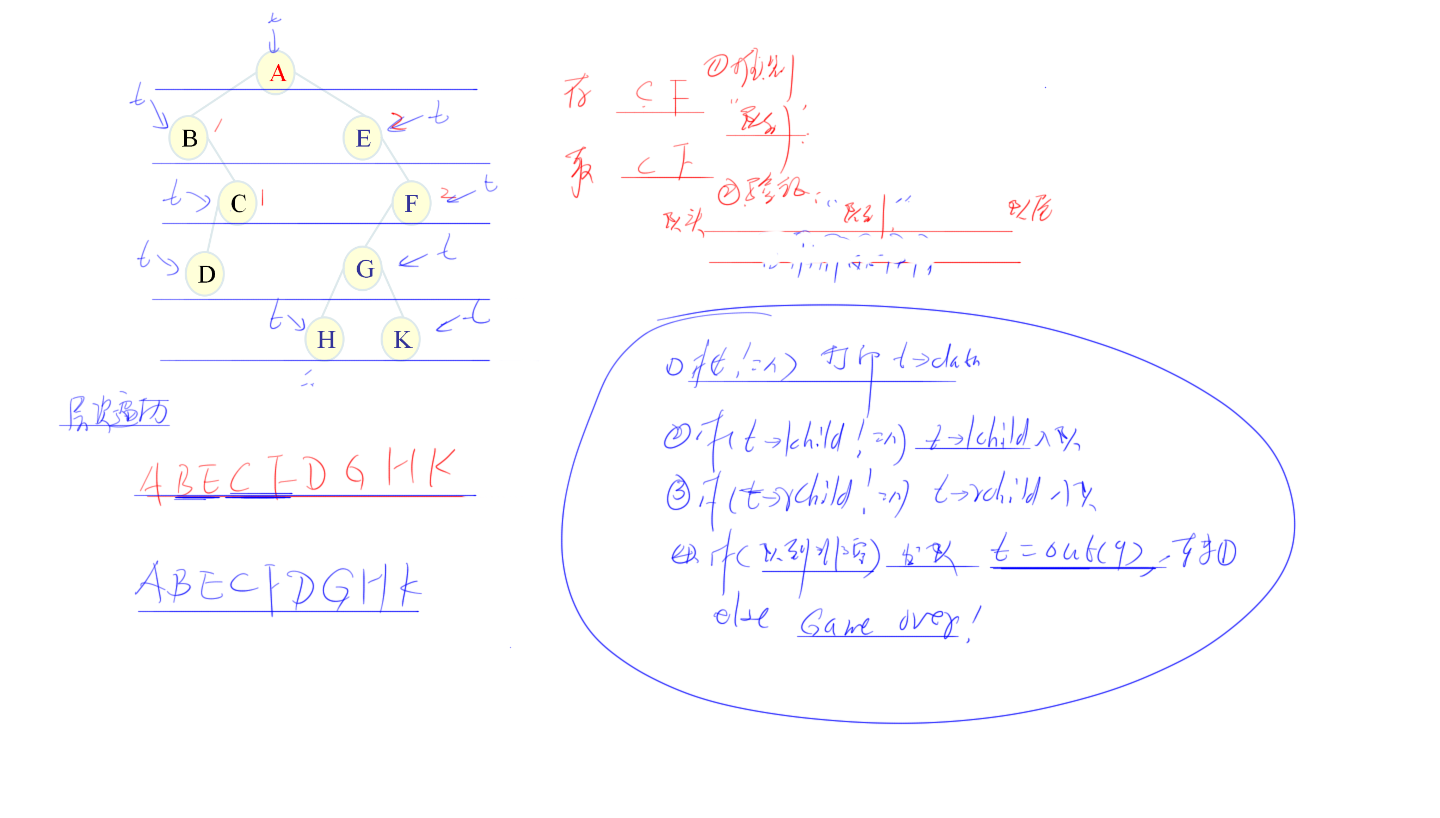 t
A
t
B 1
E 2 t
t C 1
F 2 t
t D
G t
t H
K t
层次遍历
ABECFDGHK
ABECFDGHK
存 CF ①推测
"队列"
取 CF
②验证:"队列"
队头
队尾
①if(t!=n) 打印 t→data
②if(t→lchild!=n) t→lchild入队
③if(t→rchild!=n) t→rchild入队
④if(队列非空) 出队 t=out(q),转去①
else Game over!